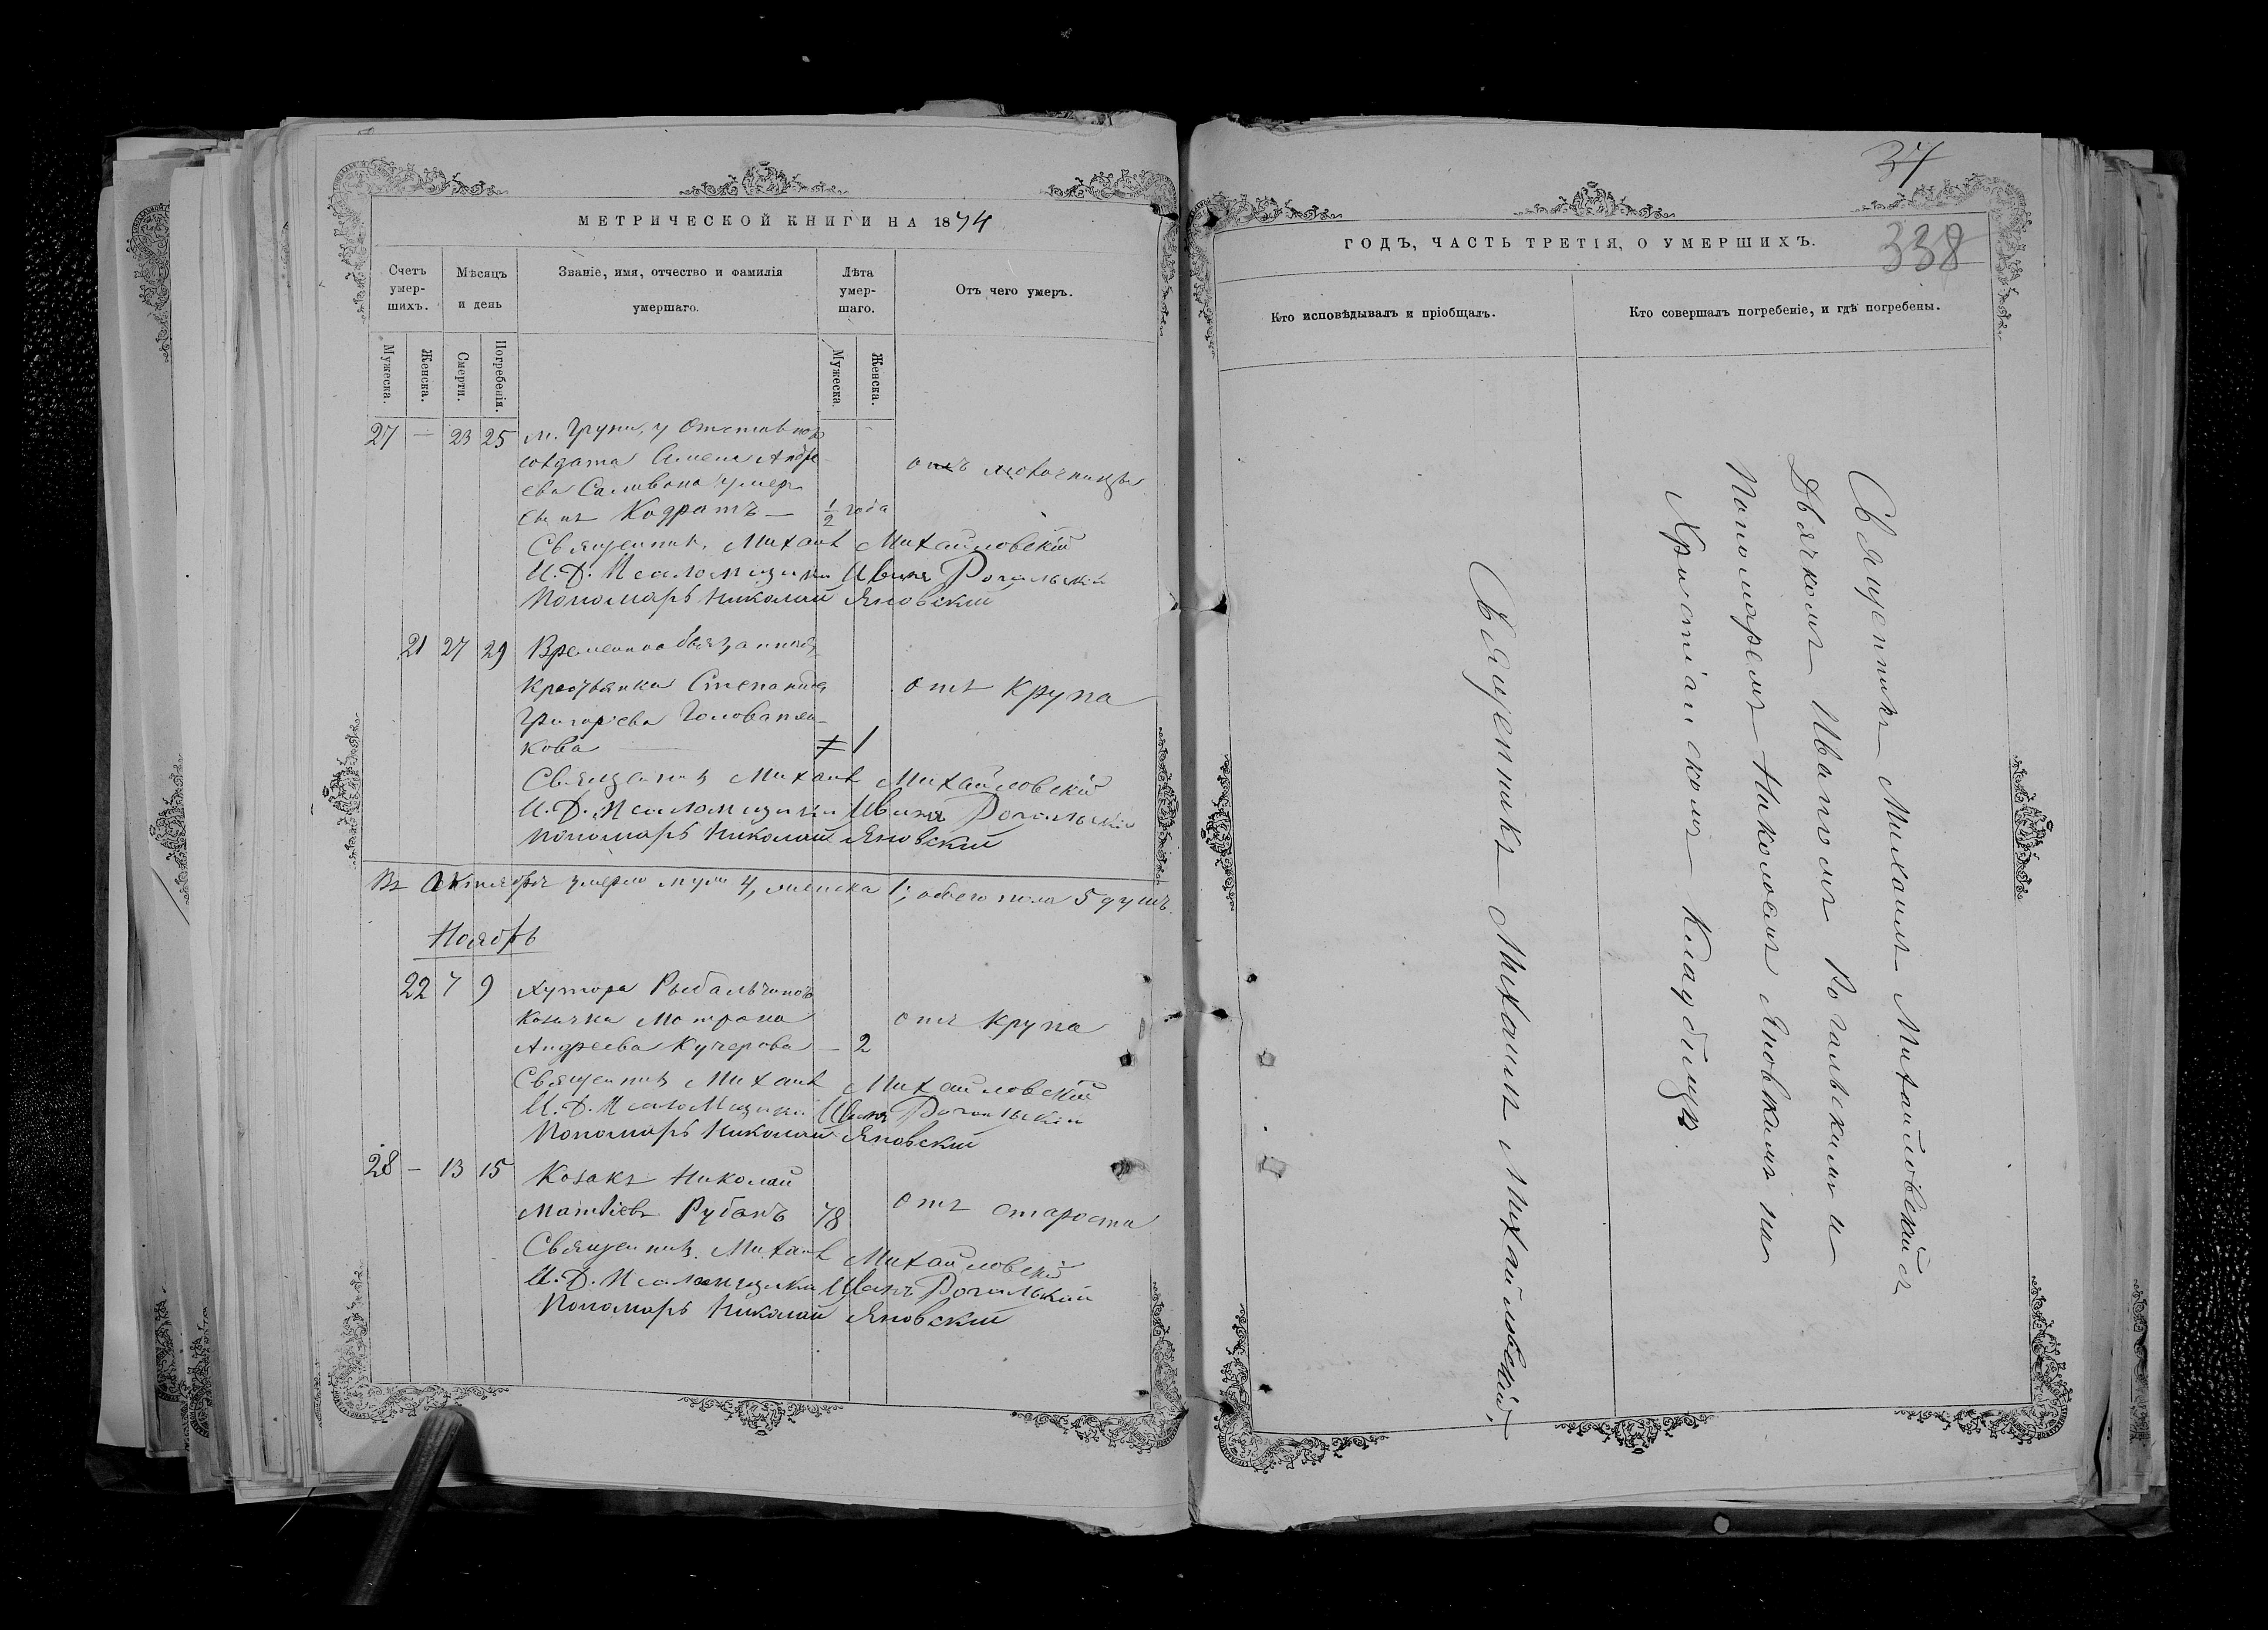 МЕТРИЧЕСКОЙ КНИГИ НА 1874
Счетъ умер-шихъ.
Мѣсяцъ и день
Званіе, имя, отчество и фамилія умершаго.
Лѣта умер-шаго.
Отъ чего умеръ.
Мужеска.
Женска.
Смерти.
Погребенія.
Мужеска
Женска.
27 — 23 25 м. Груни, у Отставнаго
солдата Семена Андре-
ева Саливона умеръ
сынъ Кодратъ — 1/2 года
отъ
Священникъ Михаилъ Михайловскій
И. Д. Псаломщика Иванъ Рогальскій
Пономарь Николай Яновскій
21 27 29 Временнообязанная
Крестьянка Степанида отъ крупа
Григорьева Головатен-
кова — 1
Священникъ Михаилъ Михайловскій
И. Д. Псаломщика Иванъ Рогальскій
Пономарь Николай Яновскій
Въ Октябрѣ умерло муж 4, женска 1; обоего пола 5 душъ.
Ноябрь
22 7 9 Хутора Рыбальченковъ
Козачка Мотрона отъ крупа
Андреева Кучерова — 2
Священникъ Михаилъ Михайловскій
И. Д. Псаломщика Иванъ Рогальскій
Пономарь Николай Яновскій
28 — 13 15 Козакъ Николай
Матвіевъ Рубанъ 78 отъ старости
Священникъ Михаилъ Михайловскій
И. Д. Псаломщика Иванъ Рогальскій
Пономарь Николай Яновскій
37
338
ГОДЪ, ЧАСТЬ ТРЕТІЯ, О УМЕРШИХЪ.
Кто исповѣдывалъ и пріобщалъ.
Кто совершалъ погребеніе, и гдѣ погребены.
Священникъ Михаилъ Михайловскій.
Священникъ Михаилъ Михайловскій съ
Дьячкомъ Иваномъ Рогальскимъ и
Пономаремъ Николаемъ Яновскимъ на
Христіанскомъ Кладбищѣ.